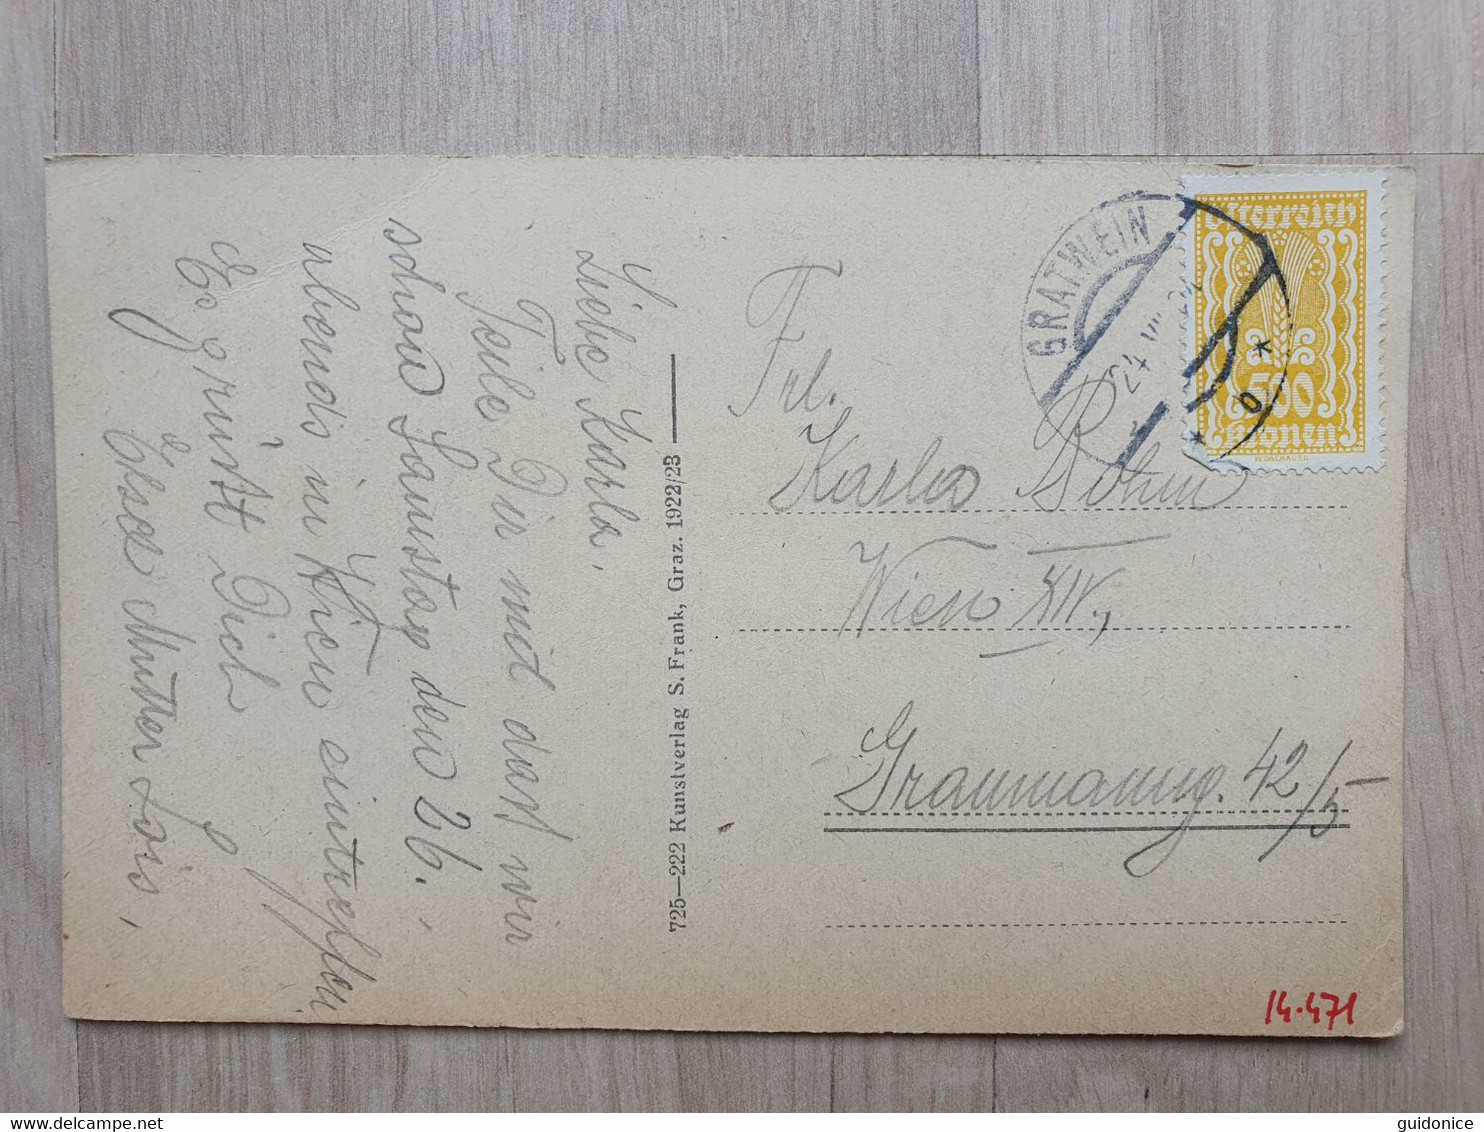 Liebe Karla.
Teile Dir mit dass wir
schon Samstag den 26.,
abends in Wien eintreffen
Es grüsst Dich
Elsa Mutter Lois,
725—222 Kunstverlag S. Frank, Graz. 1922/23
GRATWEIN
Österreich
500
Kronen
Frl.
Karla Böhm
Wien XV.,
Graumanng. 42/5
14.471
guidonice